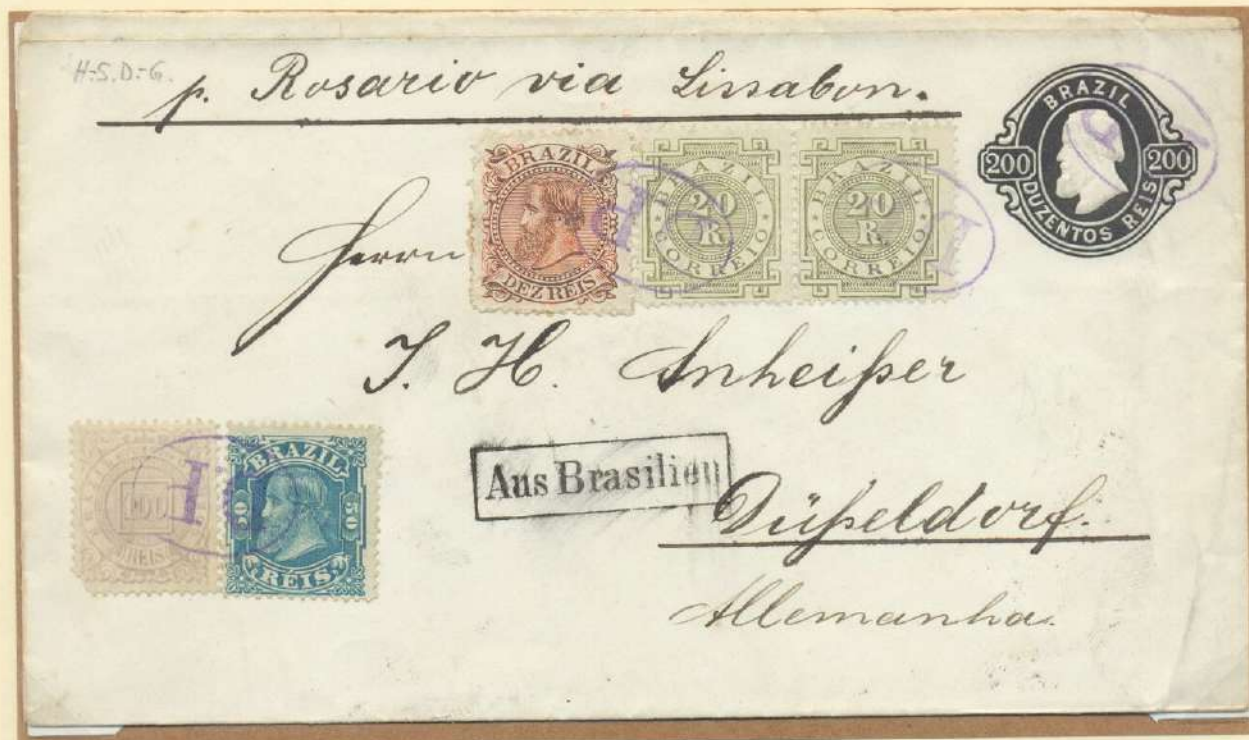 H.-S.D.-G.
p. Rosario via Lissabon.
BRAZIL
200 200
DUZENTOS REIS
BRAZIL
DEZ REIS
BRAZIL
20
R.
CORREIO
BRAZIL
20
R.
CORREIO
Herrn
J. H. Anheißer
100
REIS
BRAZIL
50 50
REIS
Aus Brasilien
Düßeldorf.
Allemanha.